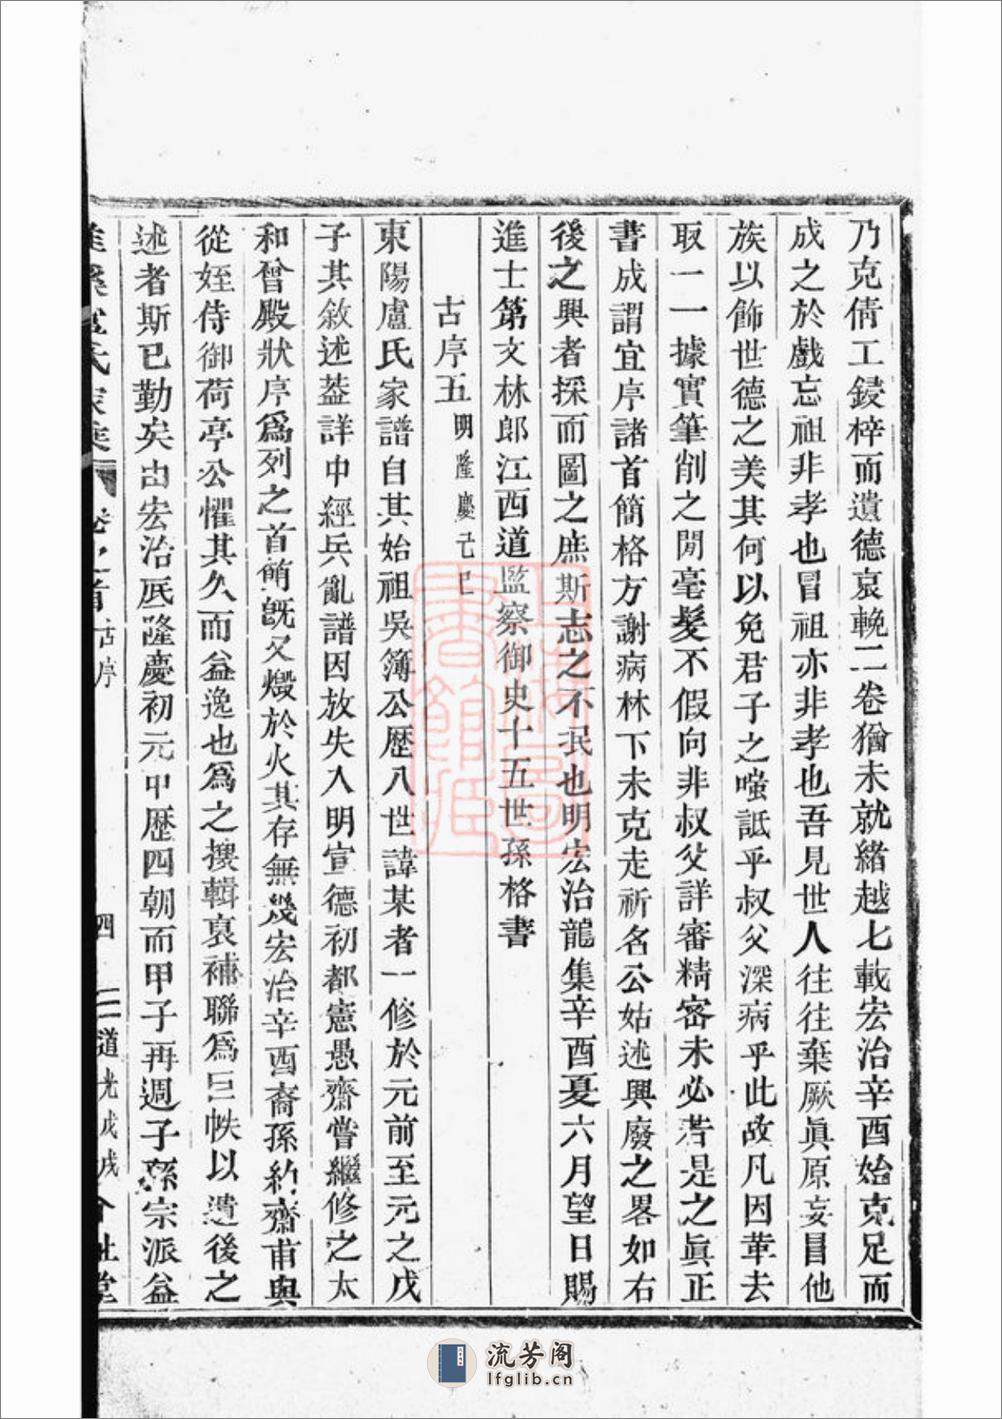 乃克倩工鋟梓而遺德哀輓二卷猶未就緒越七載宏治辛酉始克足而
成之於戲忘祖非孝也冒祖亦非孝也吾見世人往往棄厥眞原妄冒他
族以飾世德之美其何以免君子之嗤詆乎叔父深病乎此故凡因革去
取一一據實筆削之閒毫髮不假向非叔父詳審精密未必若是之眞正
書成謂宜序諸首簡格方謝病林下未克走祈名公姑述興廢之畧如右
後之興者採而圖之庶斯志之不泯也明宏治龍集辛酉夏六月望日賜
進士第文林郎江西道監察御史十五世孫格書
古序五 明隆慶己巳
東陽盧氏家譜自其始祖吳簿公歷八世諱某者一修於元前至元之戊
子其敘述葢詳中經兵亂譜因放失入明宣德初都憲愚齋嘗繼修之太
和曾殿狀序爲列之首簡旣又燬於火其存無幾宏治辛酉裔孫約齋甫與
從姪侍御荷亭公懼其久而益逸也爲之摭輯裒補聯爲巨帙以遺後之
述者斯已勤矣由宏治厎隆慶初元中歷四朝而甲子再週子孫宗派益
氏家乘 卷之首 古序 四 道光戊戌
流芳阁
lfglib.cn